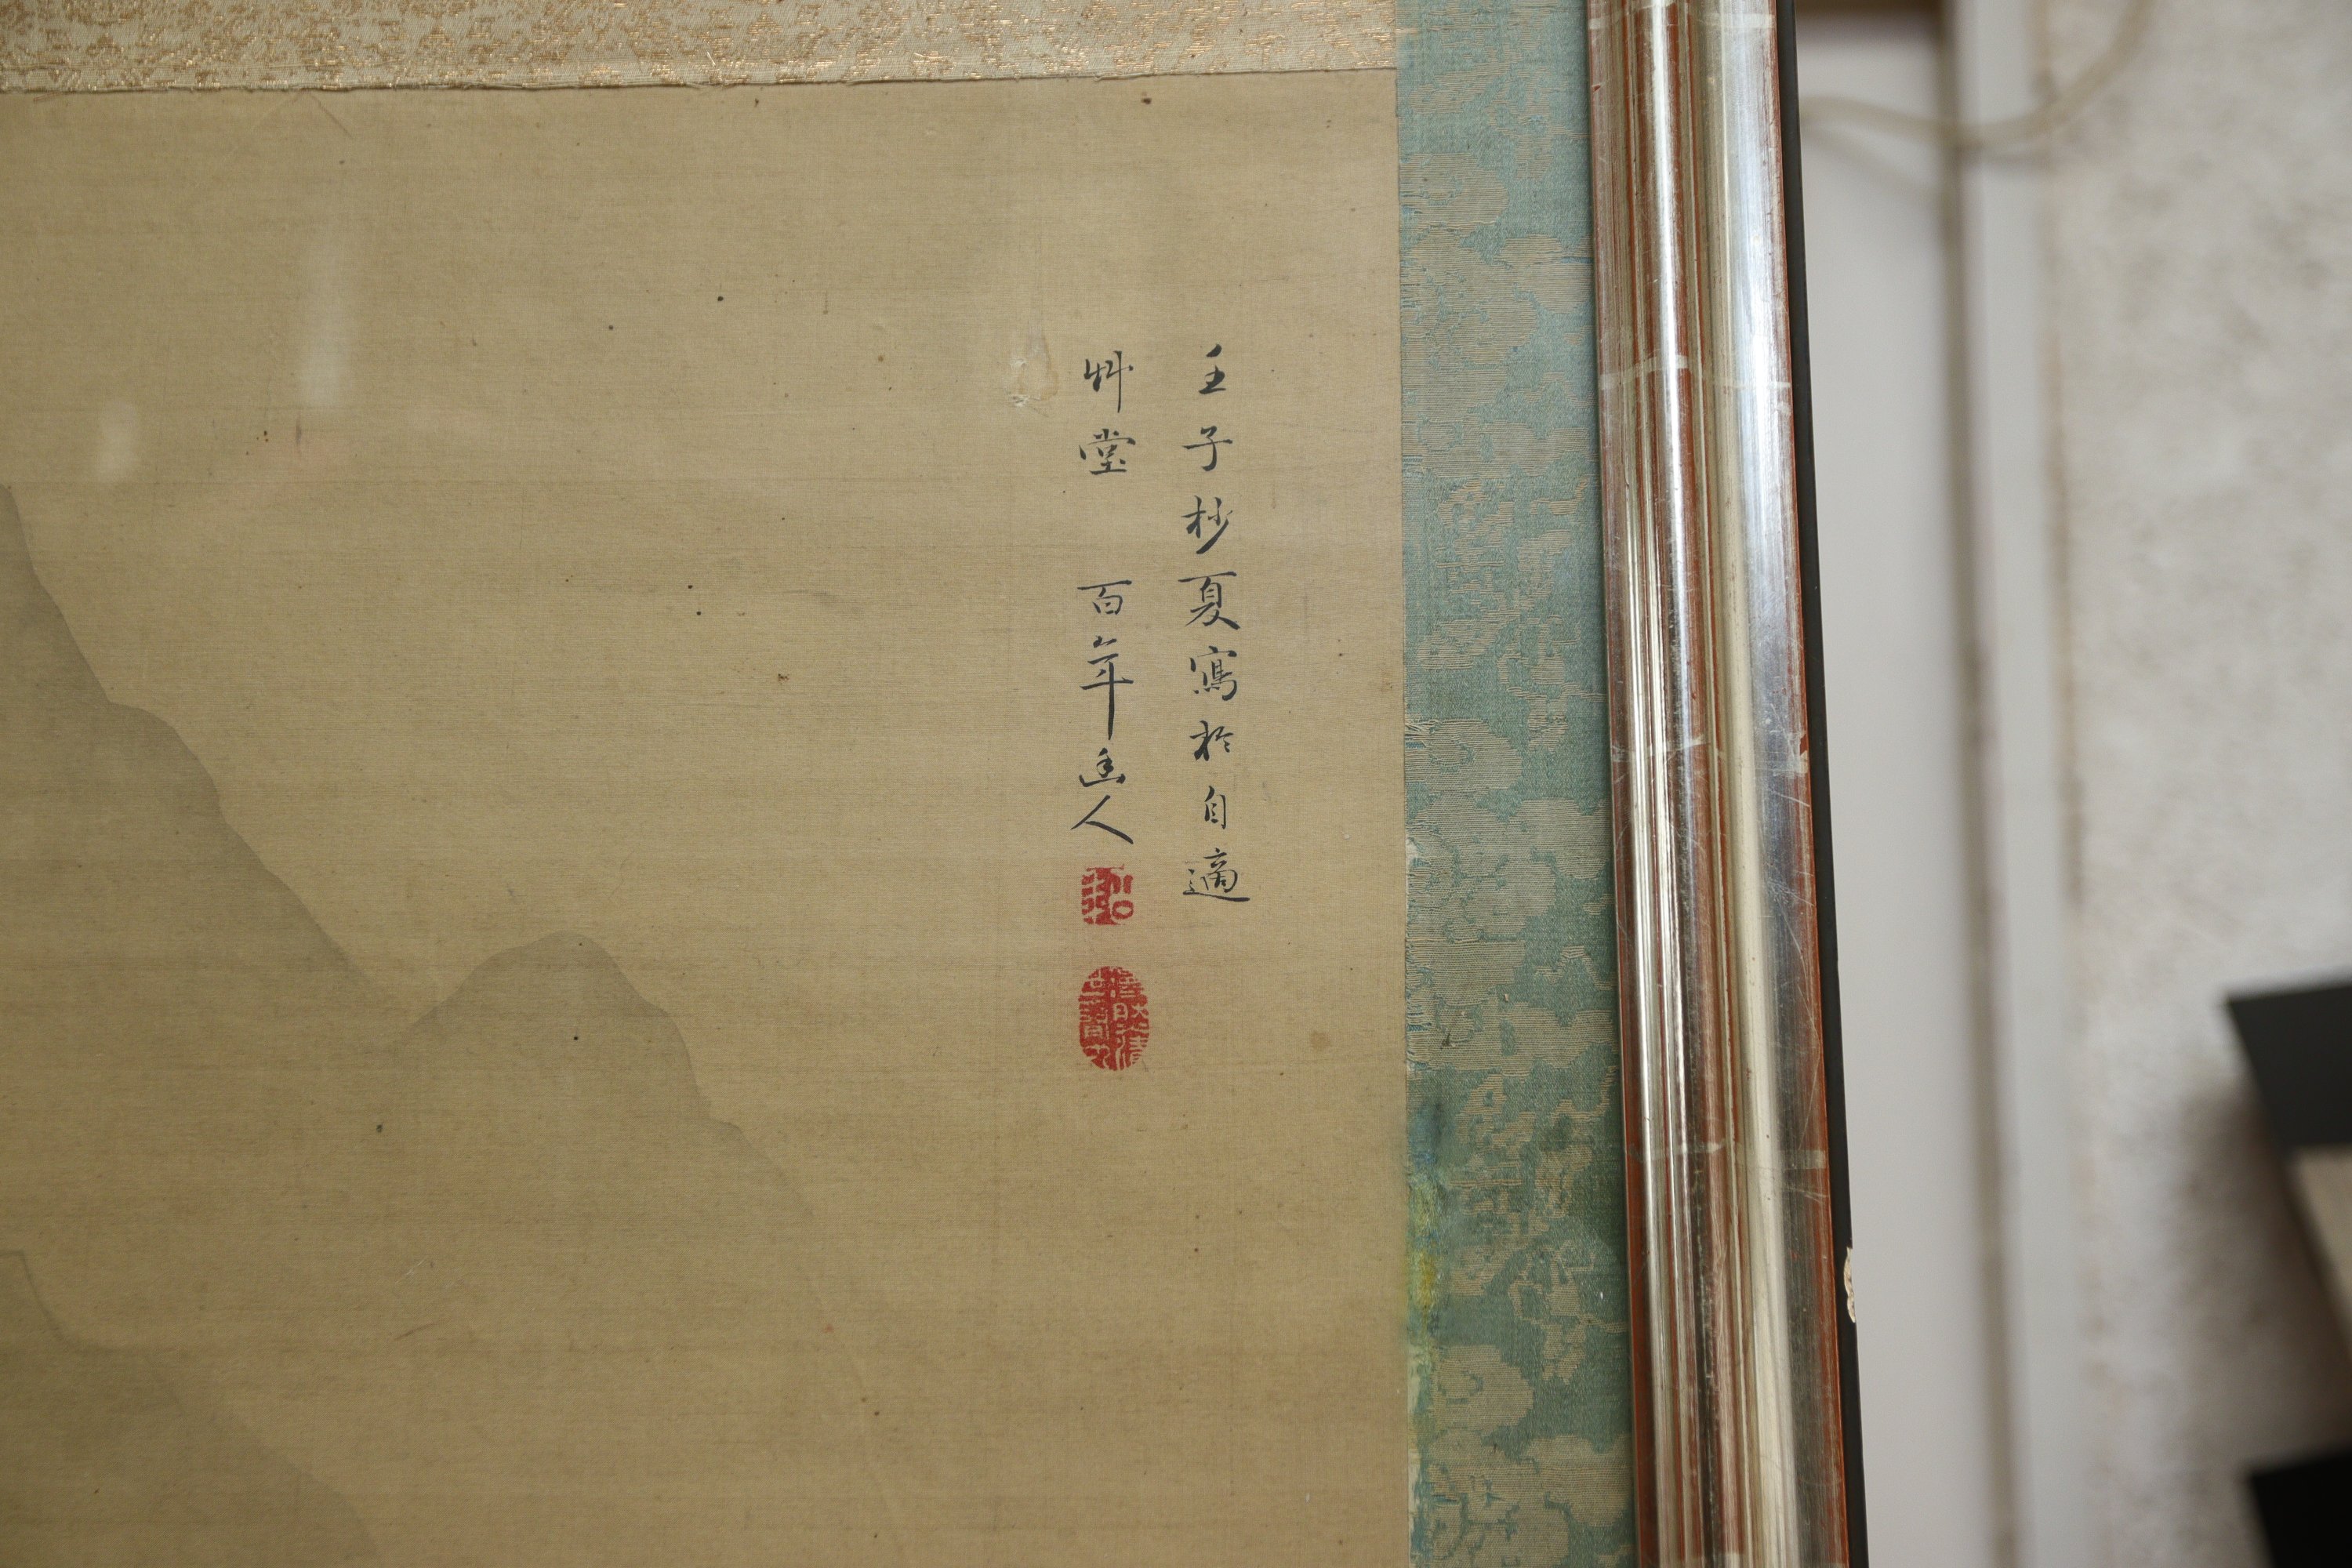 壬子杪夏寫於自適
艸堂 百年幽人